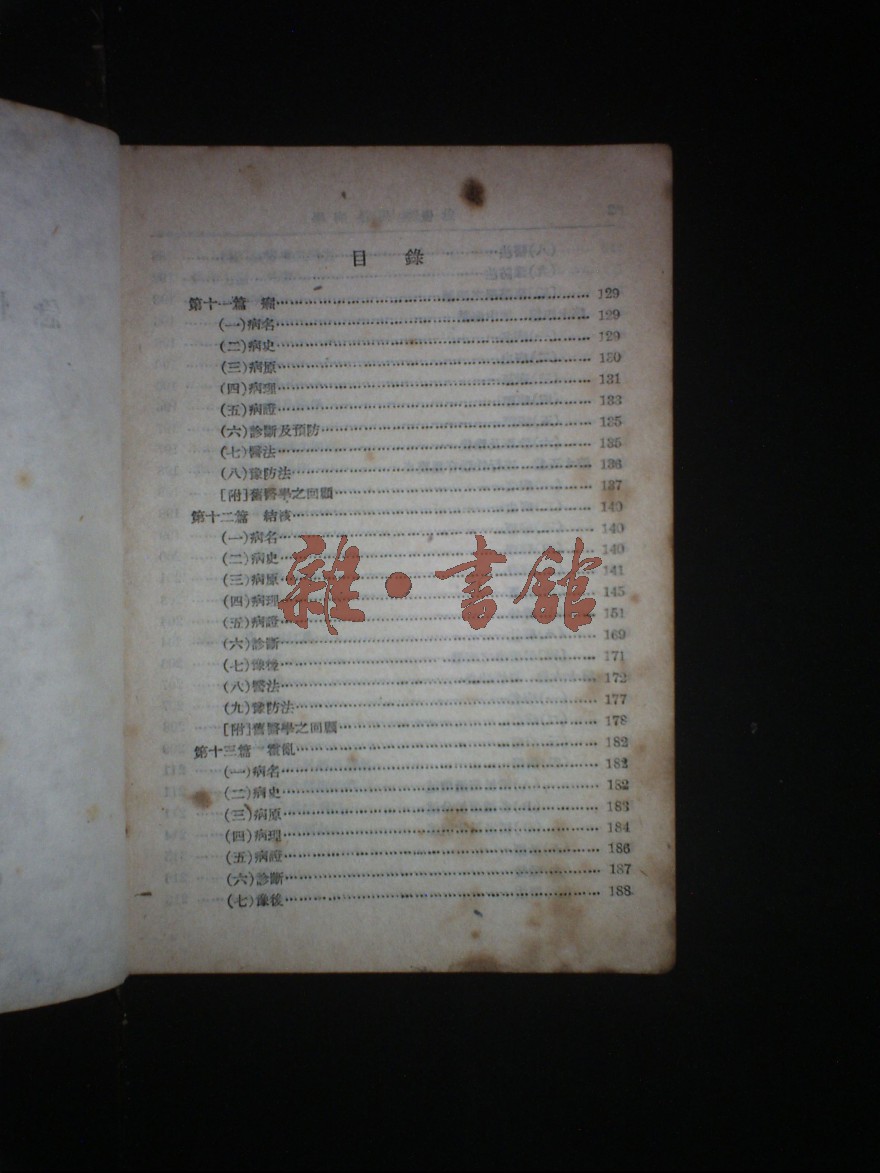 目錄
第十一篇 瘤……129
(一)病名……129
(二)病史……129
(三)病原……130
(四)病理……131
(五)病證……133
(六)診斷及預防……135
(七)醫法……135
(八)豫防法……136
[附]舊醫學之回顧……137
第十二篇 結核……140
(一)病名……140
(二)病史……140
(三)病原……141
(四)病理……145
(五)病證……151
(六)診斷……169
(七)豫後……171
(八)醫法……172
(九)豫防法……177
[附]舊醫學之回顧……178
第十三篇 霍亂……182
(一)病名……182
(二)病史……182
(三)病原……183
(四)病理……184
(五)病證……186
(六)診斷……187
(七)豫後……188
雜·書館